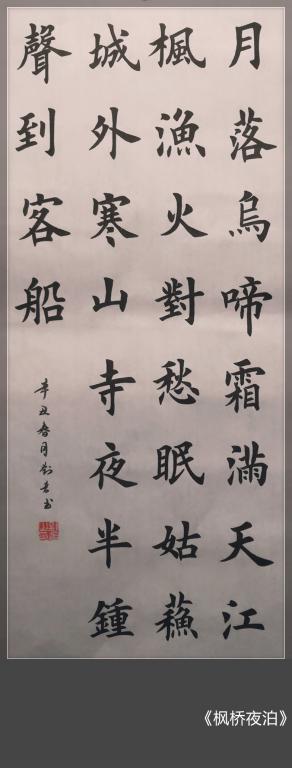 月落烏啼霜滿天江
楓漁火對愁眠姑蘓
城外寒山寺夜半鍾
聲到客船
辛丑春月劉書
《枫桥夜泊》